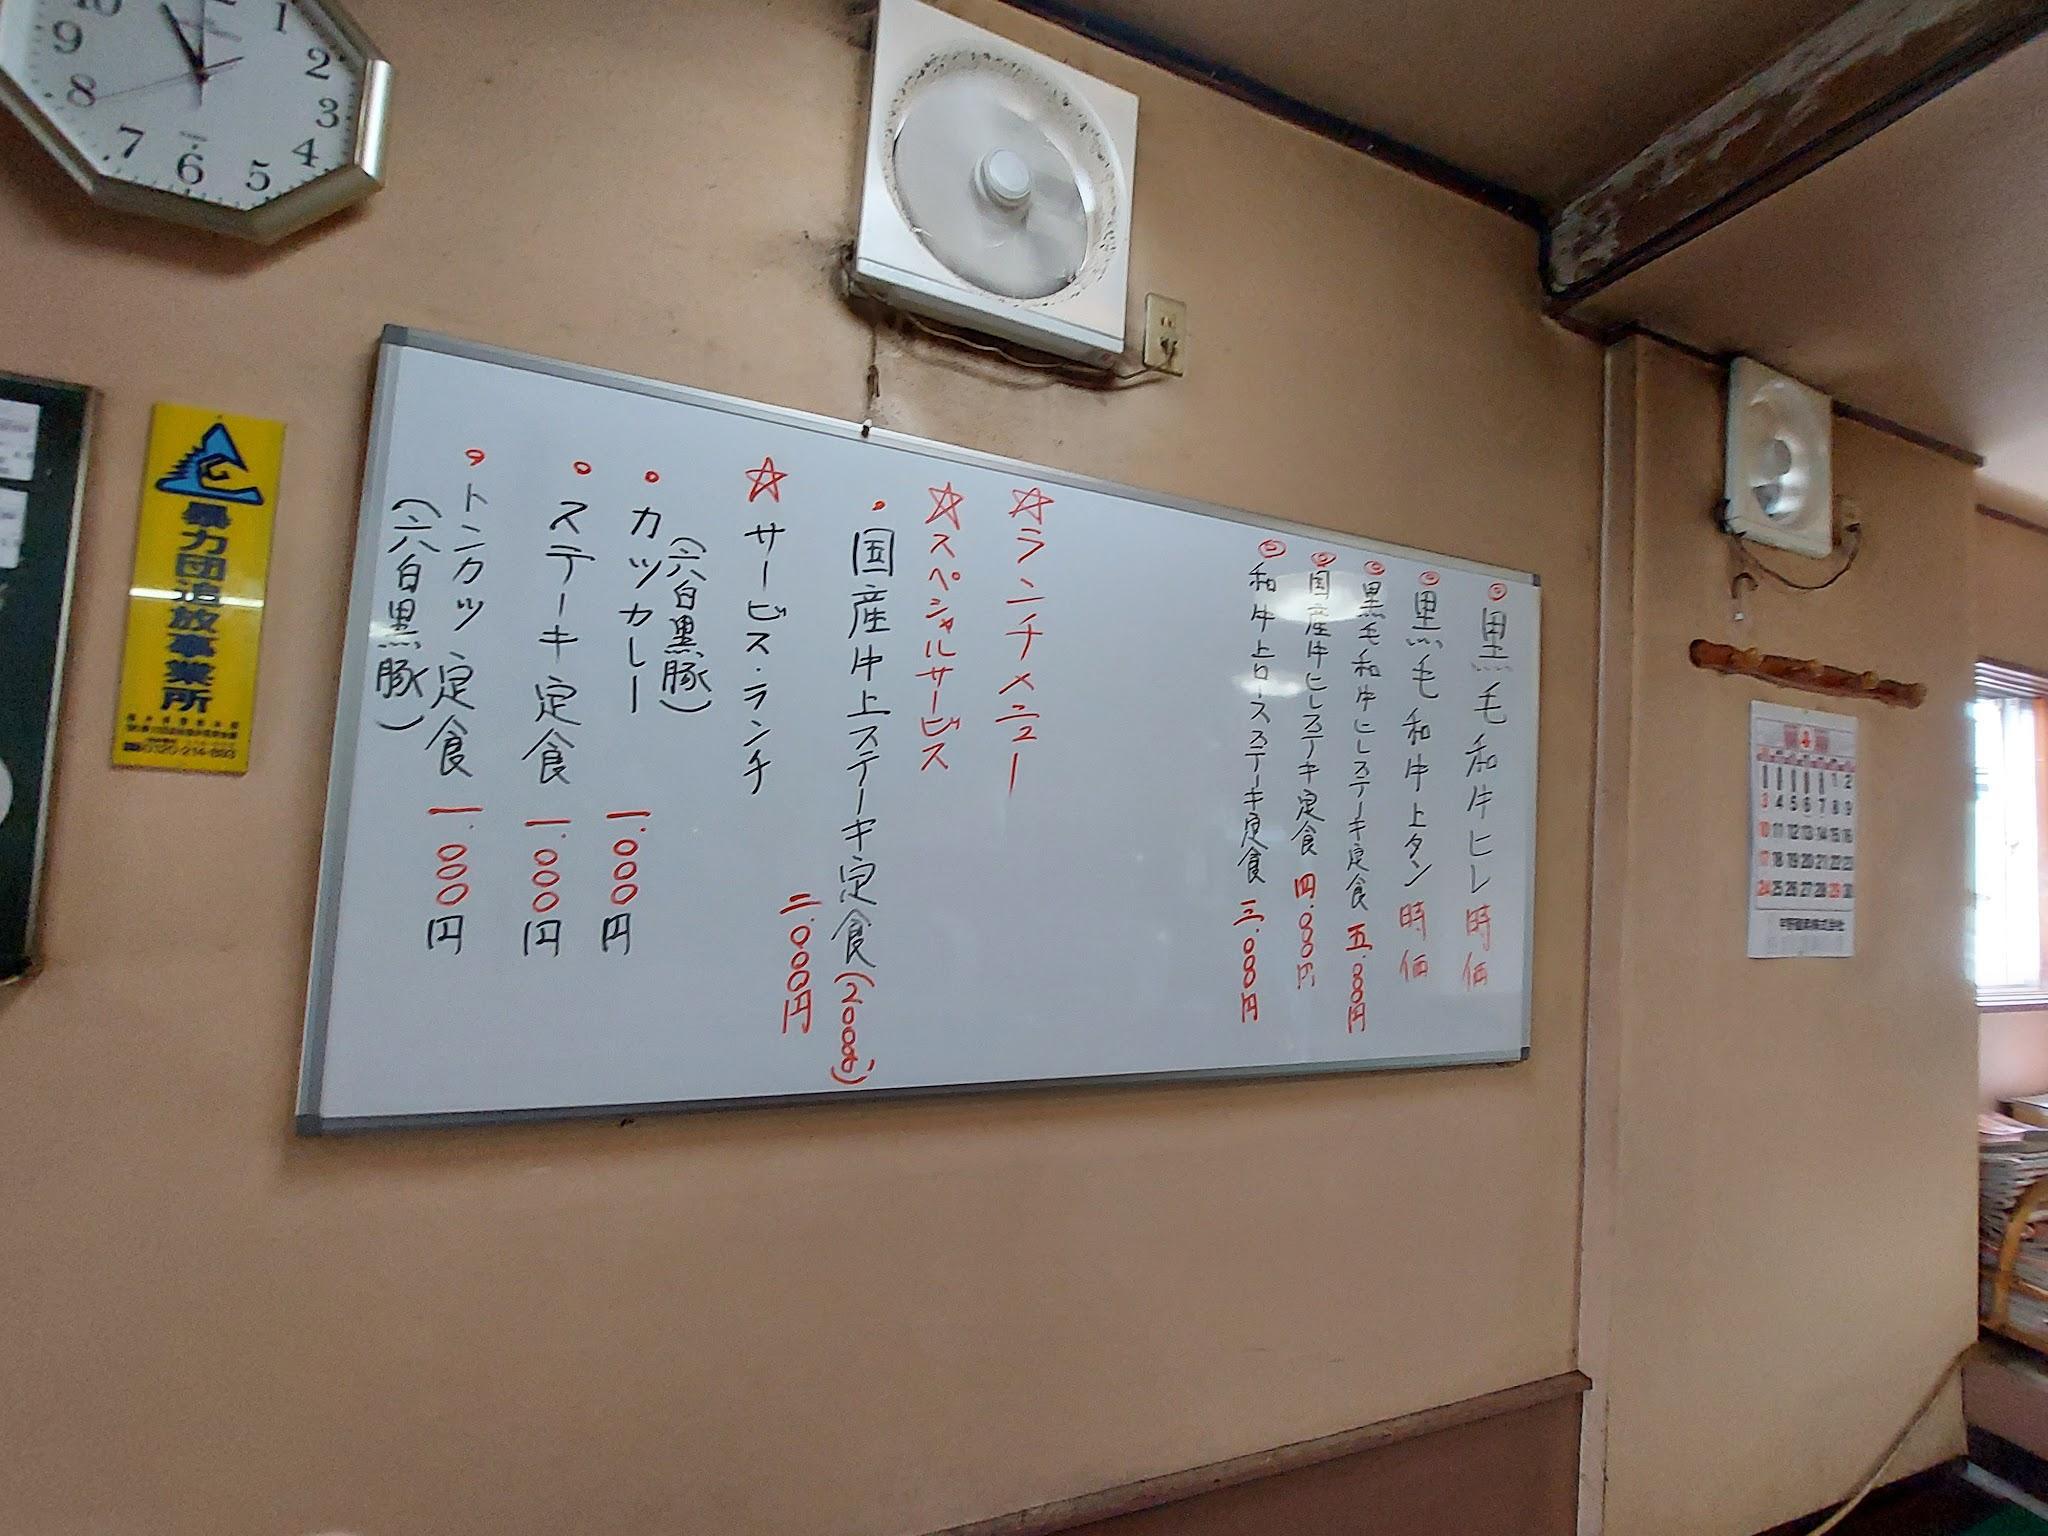 10
9
8
7
6
5
4
3
2
1
暴力団追放事業所
0120-214-893
◎黒毛和牛ヒレ 時価
◎黒毛和牛上タン 時価
◎黒毛和牛ヒレステーキ定食 五.000円
◎国産牛ヒレステーキ定食 四.000円
◎和牛上ロースステーキ定食 三.000円
☆ランチメニュー
☆スペシャルサービス
・国産牛上ステーキ定食(200g)
二.000円
☆サービス・ランチ
(六白黒豚)
・カツカレー 一.000円
・ステーキ定食 一.000円
・トンカツ定食 一.000円
(六白黒豚)
4
1 2
3 4 5 6 7 8 9
10 11 12 13 14 15 16
17 18 19 20 21 22 23
24 25 26 27 28 29 30